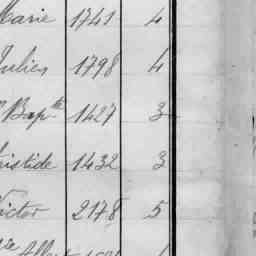 Marie 1741 4
Julien 1798 4
Bapte 1427 3
istide 1432 3
ictor 2178 5